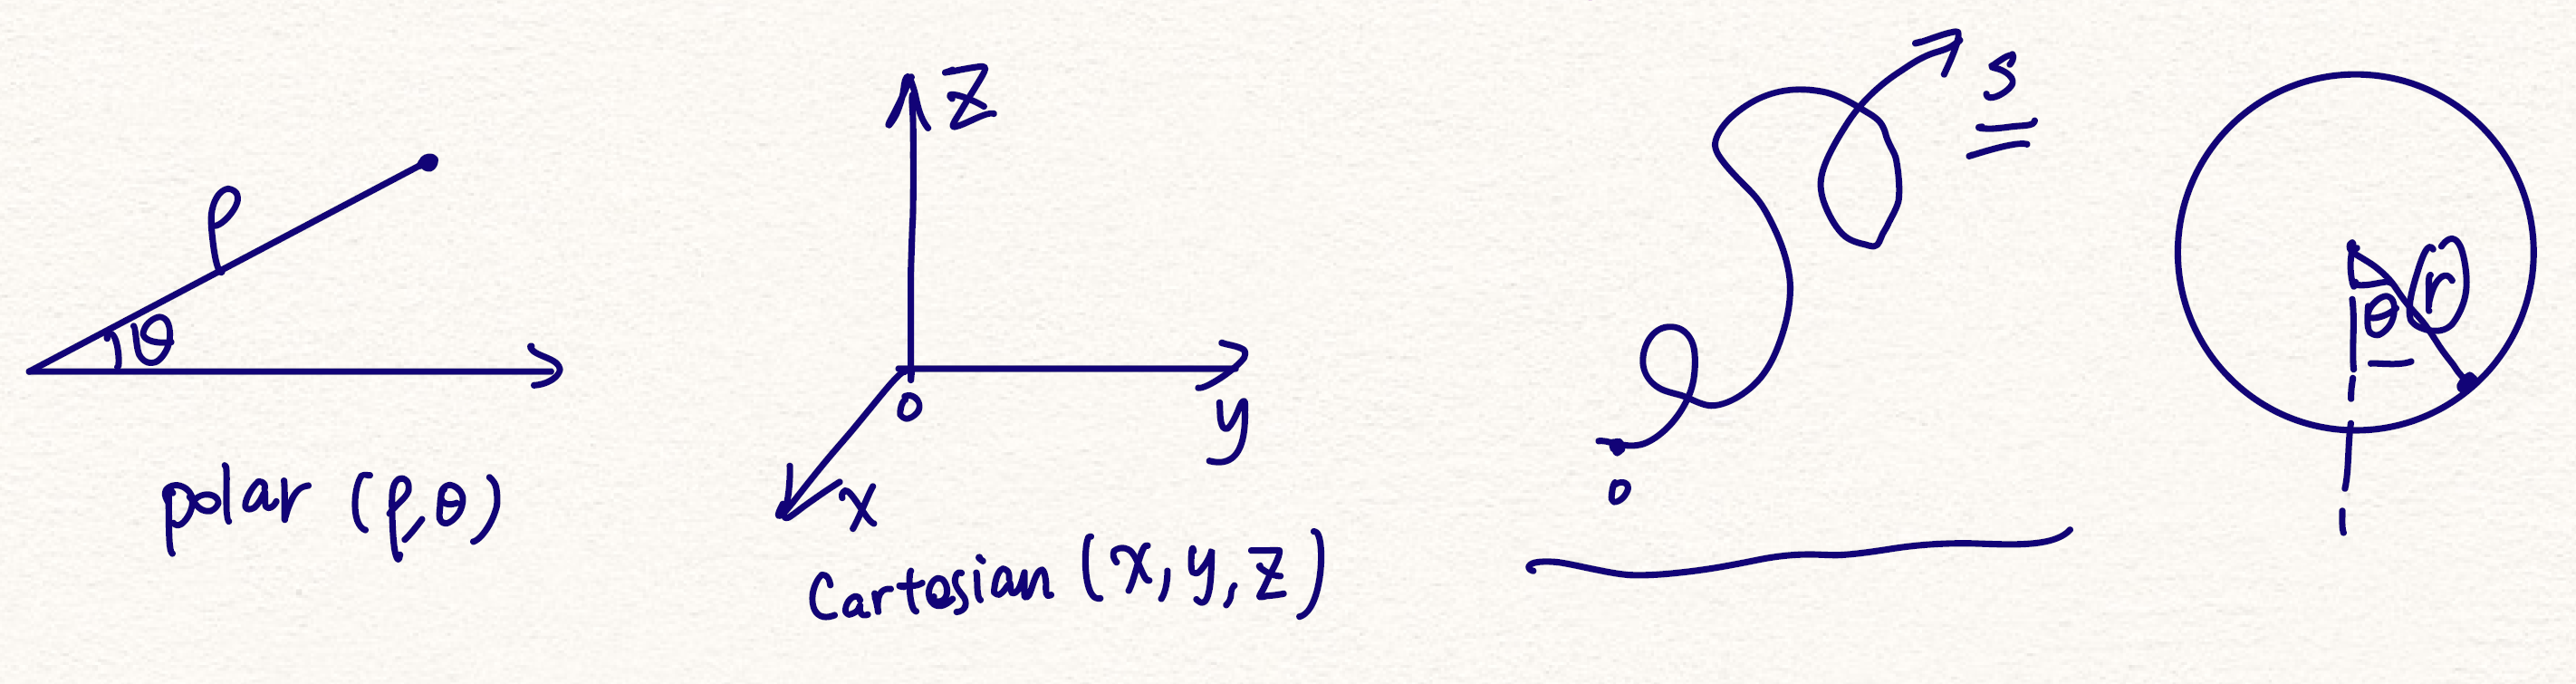 ρ
θ
polar (ρ,θ)
Z
0
y
x
Cartesian (x, y, z)
s
0
r
θ